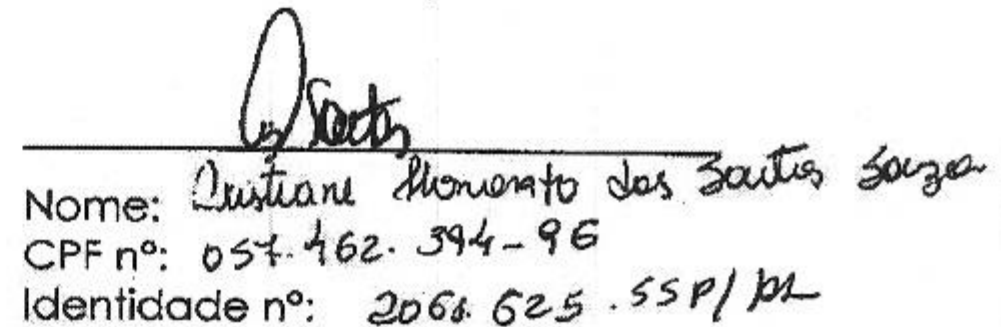 Santos
Nome: Cristiane Honorato dos Santos Souza
CPF nº: 057.462.394-96
Identidade nº: 2061.625.SSP/AL